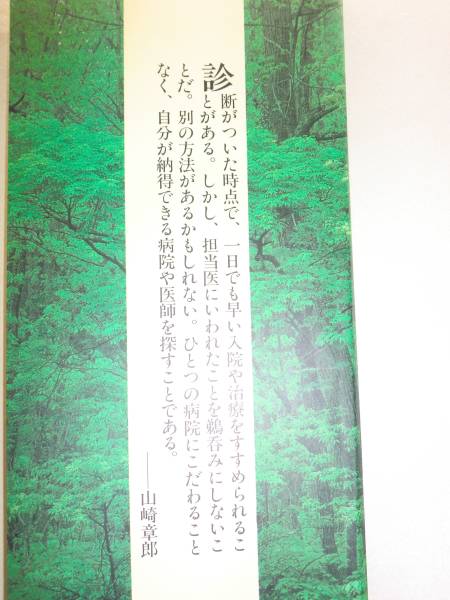 診断がついた時点で、一日でも早い入院や治療をすすめられるこ
とがある。しかし、担当医にいわれたことを鵜呑みにしないこ
とだ。別の方法があるかもしれない。ひとつの病院にこだわること
なく、自分が納得できる病院や医師を探すことである。
──山崎章郎